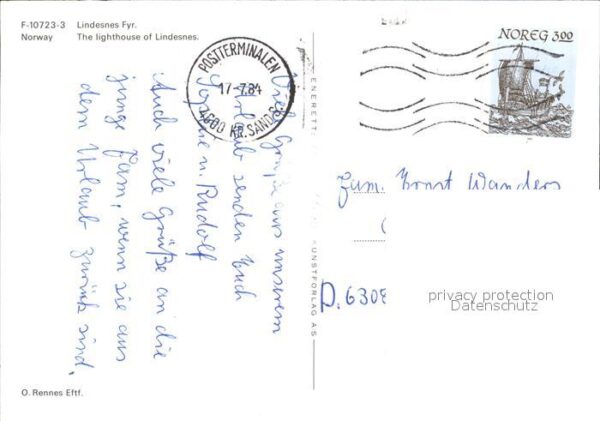 F-10723-3 Lindesnes Fyr.
Norway The lighthouse of Lindesnes.
POSTTERMINALEN
17-7.84
4600 KR.SAND S.
NOREG 3,00
Viele Grüße aus unserem
Urlaub senden Euch
u. Rudolf
Auch viele Grüße an die
junge Fam., wenn sie aus
dem Urlaub zurück sind.
ENERETT:
KUNSTFORLAG A.S
Fam. Ernst Wanders
D. 6308
privacy protection
Datenschutz
O. Rennes Eftf.